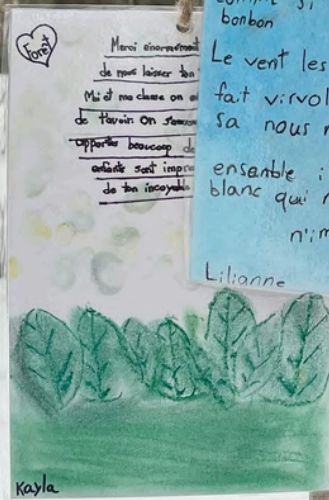 Forêt
Merci énormément
de nous laisser ton
Moi et ma classe on e
de t'avoir. On s'amuse
apportes beaucoup de
enfants sont impre
de ton incroyable
Kayla
bonbon
Le vent les
fait virvol
sa nous r
ensemble i
blanc qui r
n'im
Lilianne